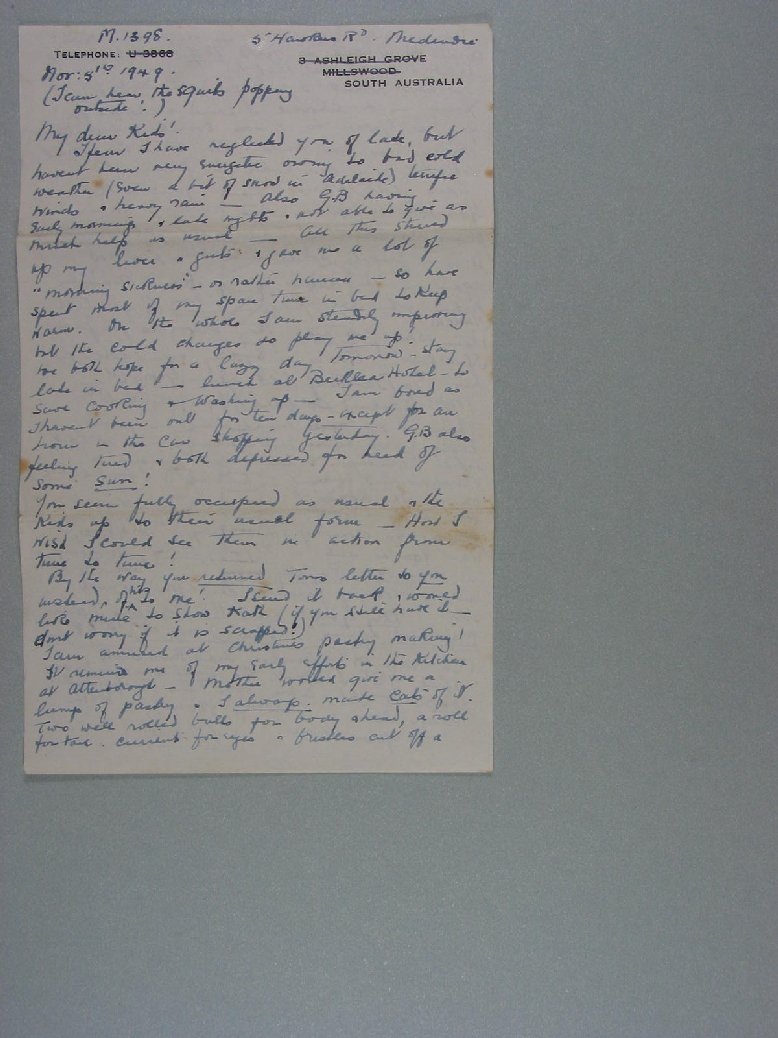 M. 1398. 5 Hawkers Rd. Medindie
TELEPHONE: U 3868 3 ASHLEIGH GROVE
MILLSWOOD
Nov: 5th 1949. SOUTH AUSTRALIA
(I can hear the squibs popping
outside!)
My dear Kids!
I fear I have neglected you of late, but
havent been very energetic owing to bad cold
weather (even a bit of snow in Adelaide) terrific
winds & heavy rain — also G.B having
early mornings & late nights & not able to give as
much help as usual — all this stirred
up my liver & guts & gave me a lot of
"morning sickness" – or rather nausea – so have
spent most of my spare time in bed to keep
warm. On the whole I am steadily improving
but the cold changes so play me up!
We both hope for a lazy day tomorrow – stay
late in bed – lunch at Hotel – to
save cooking & washing up – I am bored as
I havent been out for ten days – except for an
hour in the car shopping yesterday. G.B also
feeling tired & both depressed for need of
some Sun!
You seem fully occupied as usual & the
Kids up to their usual form – How I
wish I could see them in action from
time to time!
By the way you returned Toms letter to you
instead of his to me! I send it back & would
like mine to show Kath (if you still have it –
dont worry if it is scrapped!)
I am amused at Christines pastry making!
It reminds me of my early efforts in the Kitchen
at Attenborough – Mother would give me a
lump of pastry & I always made cats of it.
Two well rolled balls for body & head, a roll
for tail. currents for eyes & bristles cut off a